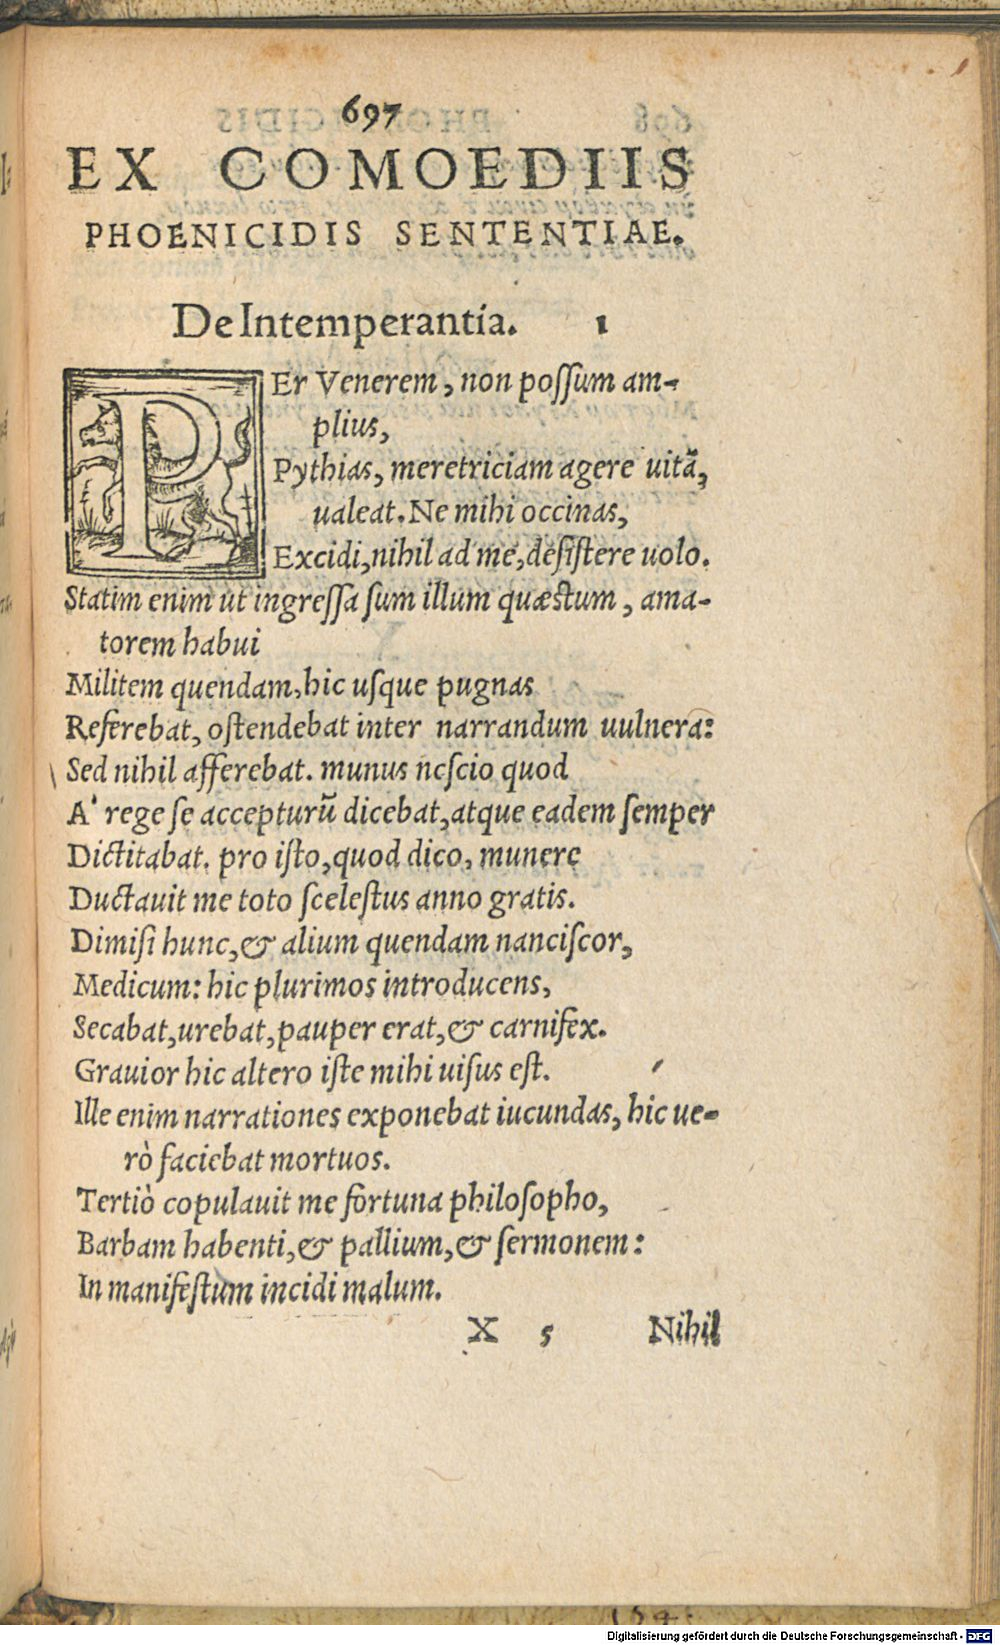 697
EX COMOEDIIS
PHOENICIDIS SENTENTIAE.
De Intemperantia. 1
PEr Venerem, non possum am-
plius,
Pythias, meretriciam agere uitã,
ualeat. Ne mihi occinas,
Excidi, nihil ad me, desistere uolo.
Statim enim ut ingressa sum illum quæstum, ama-
torem habui
Militem quendam, hic usque pugnas
Referebat, ostendebat inter narrandum uulnera:
Sed nihil afferebat. munus nescio quod
A' rege se accepturũ dicebat, atque eadem semper
Dictitabat. pro isto, quod dico, munere
Ductauit me toto scelestus anno gratis.
Dimisi hunc, & alium quendam nanciscor,
Medicum: hic plurimos introducens,
Secabat, urebat, pauper erat, & carnifex.
Grauior hic altero iste mihi uisus est.
Ille enim narrationes exponebat iucundas, hic ue-
rò faciebat mortuos.
Tertiò copulauit me fortuna philosopho,
Barbam habenti, & pallium, & sermonem:
In manifestum incidi malum.
X 5 Nihil
Digitalisierung gefördert durch die Deutsche Forschungsgemeinschaft - DFG